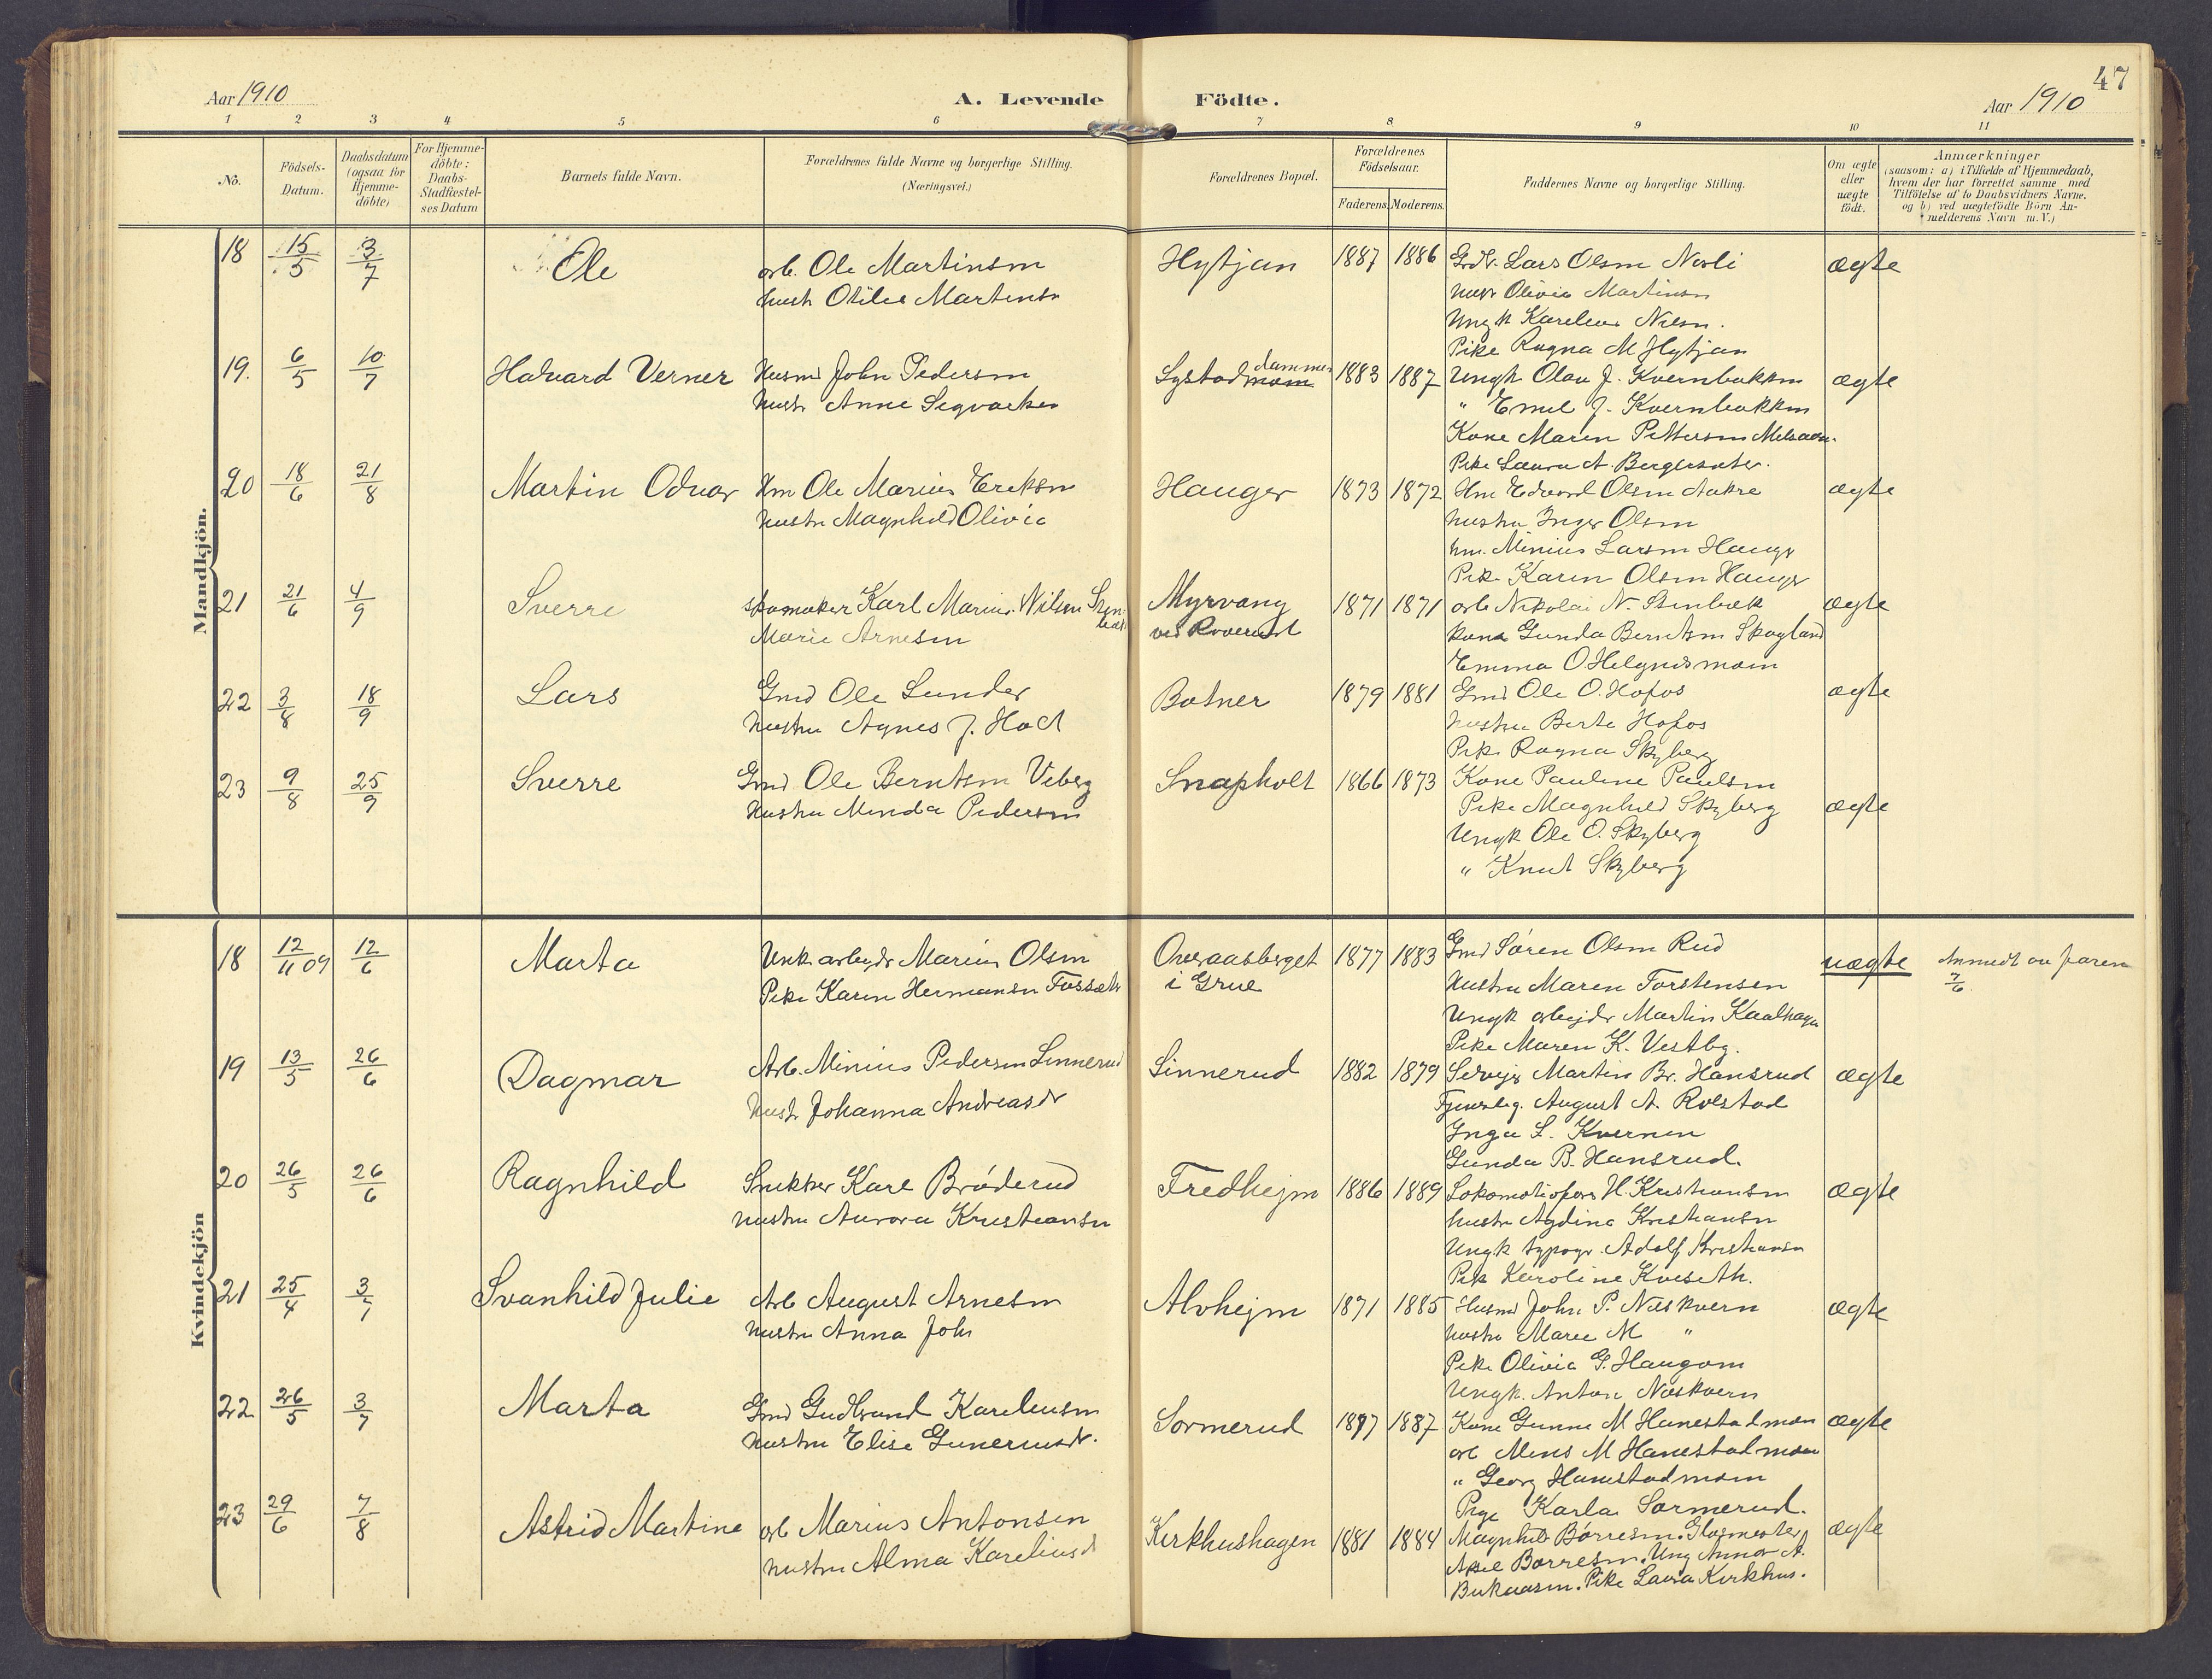 47
Aar 1910
A. Levende Födte.
Aar 1910
1 2 3 4 5 6 7 8 9 10 11
No.
Födsels-Datum.
Daabsdatum (ogsaa for Hjemme-döbte)
For Hjemme-döbte: Daabs-Stadfæstel-ses Datum
Barnets fulde Navn.
Forældrenes fulde Navne og borgerlige Stilling.
(Næringsvei.)
Forældrenes Bopæl.
Forældrenes Födselsaar.
Faderens. Moderens.
Faddernes Navne og borgerlige Stilling.
Om ægte eller uægte födt.
Anmærkninger
(saasom: a) i Tilfælde af Hjemmedaab,
hvem der har forrettet samme med
Tilföielse af to Daabsvidners Navne,
og b) ved uægtefödte Börn An-
melderens Navn m. V.)
Mandkjön.
18 15/5 3/7 Ole arb. Ole Martinsen Hytjan 1887 1886 Grdbr. Lars Olsen Nerli ægte
hustr Otilie Martinsen
hustr Olivia Martinsen
Ungk Karelius Nilsen.
Pike Ragna M Hytjan
19. 6/5 10/7 Halvard Verner Husmd John Pedersen Systad dammen 1883 1887 Ungk Olav J. Kvernbakken ægte
Hustr Anne
" Emil J. Kvernbakken
Kone Maren Pettersen
Pike Laura A. Bergerseter.
20 18/6 21/8 Martin Odvar Hm Ole Marius Eriksen Hauger 1873 1872 Hm Edvard Olsen Aakre ægte
hustru Magnhild Olivia
hustru Inger Olsen
hm. Minius Larsen Hauger
Pike Karen Olsen Hauger
21 21/6 4/9 Sverre Skomaker Karl Marius Nilsen Stenbæk Myrvang 1871 1871 arb Nikolai N. Stenbæk ægte
Marie Arnesen ved Roverud
Kone Gunda Berntsen Skogland
Emma O Helgnesmoen
22 3/8 18/9 Lars Gmd Ole Sunder Botner 1879 1881 Gmd Ole O. Hofos ægte
hustru Agnes J. Hod
hustru Berte Hofos
Pike Ragna Skyberg
23 9/8 25/9 Sverre Gmd Ole Berntsen Viberg Snapholt 1866 1873 Kone Pauline Paulsen
hustru Minda Pedersen
Pike Magnhild Skyberg ægte
Ungk Ole O. Skyberg
" Knut Skyberg
Kvindekjön
18 12/11 09 12/6 Marta Unk. arbejdr Marius Olsen Overaasberget 1877 1883 Gmd Søren Olsen Rud uægte Anmeldt av faren
Pike Karen Hermansen Fossæth i Grue
7/6
Hustru Maren Torstensen
Ungk arbejdr Martin Kaalhagen
Pike Maren K. Vestbg.
19 13/5 26/6 Dagmar Arb. Minius Pedersen Linnerud Linnerud 1882 1879 Selvejer Martin Br. Hansrud ægte
hustr Johanna Andreasdr
August A. Rolstad
Inga L. Kvernen
Gunda B. Hansrud.
20 26/5 26/6 Ragnhild Snekker Karl Bråderud Fredhejm 1886 1889 Lokomotivfører H. Kristiansen ægte
hustru Aurora Kristiansen
hustr Agdina Kristiansen
Ungk typogr. Adolf Kristiansen
Pike Karoline Kveseth.
21 25/4 3/7 Svanhild Julie Arb August Arnesen Alvhejm 1871 1885 Husmd John P. Næskvern ægte
hustru Anna Joh
hustru Maree M "
Pike Olivia G. Haugom
Ungk. Anton Næskvern
22 26/5 3/7 Marta Gmd Gudbrand Kareliusen Sormerud 1877 1887 Kone Gunne M Hanestadmoen ægte
hustru Elise Guneriusdr.
arb Mens M Hanestadmoen
" Georg Hanestadmoen
Pige Karla Sormerud.
23 29/6 7/8 Astrid Martine arb Marius Antonsen Kirkhushagen 1881 1884 Magnhild Børresen. Glasmester ægte
hustru Alma Kareliusd
Aksel Børresen. Ung Annar A.
Pike Laura Kirkhus.